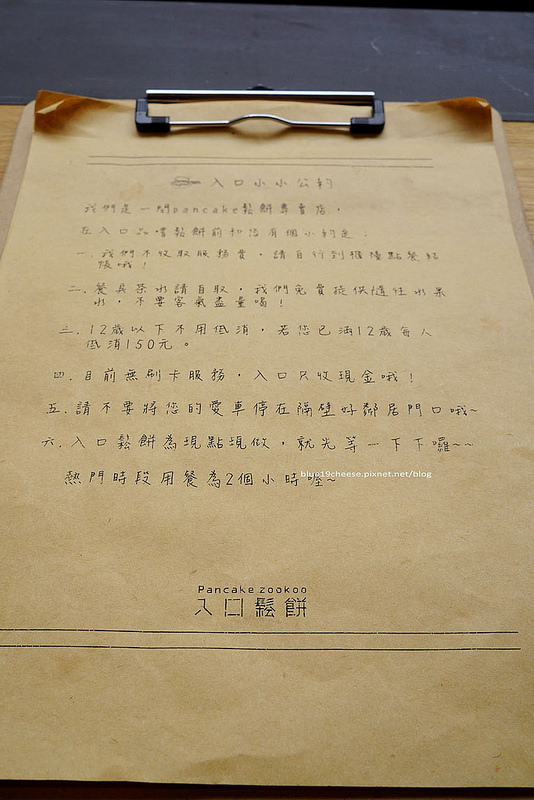 入口小小公約
我們是一間pancake鬆餅專賣店，
在入口品嚐鬆餅前和您有個小約定：
一. 我們不收取服務費，請自行到櫃檯點餐結
帳哦！
二. 餐具茶水請自取，我們免費提供隨性水果
水，不要客氣盡量喝！
三. 12歲以下不用低消，若您已滿12歲每人
低消150元。
四. 目前無刷卡服務，入口只收現金哦！
五. 請不要將您的愛車停在隔壁好鄰居門口哦~
六. 入口鬆餅為現點現做，就先等一下下囉~~
熱門時段用餐為2個小時喔~
blue19cheese.pixnet.net/blog
Pancake zookoo
入口鬆餅